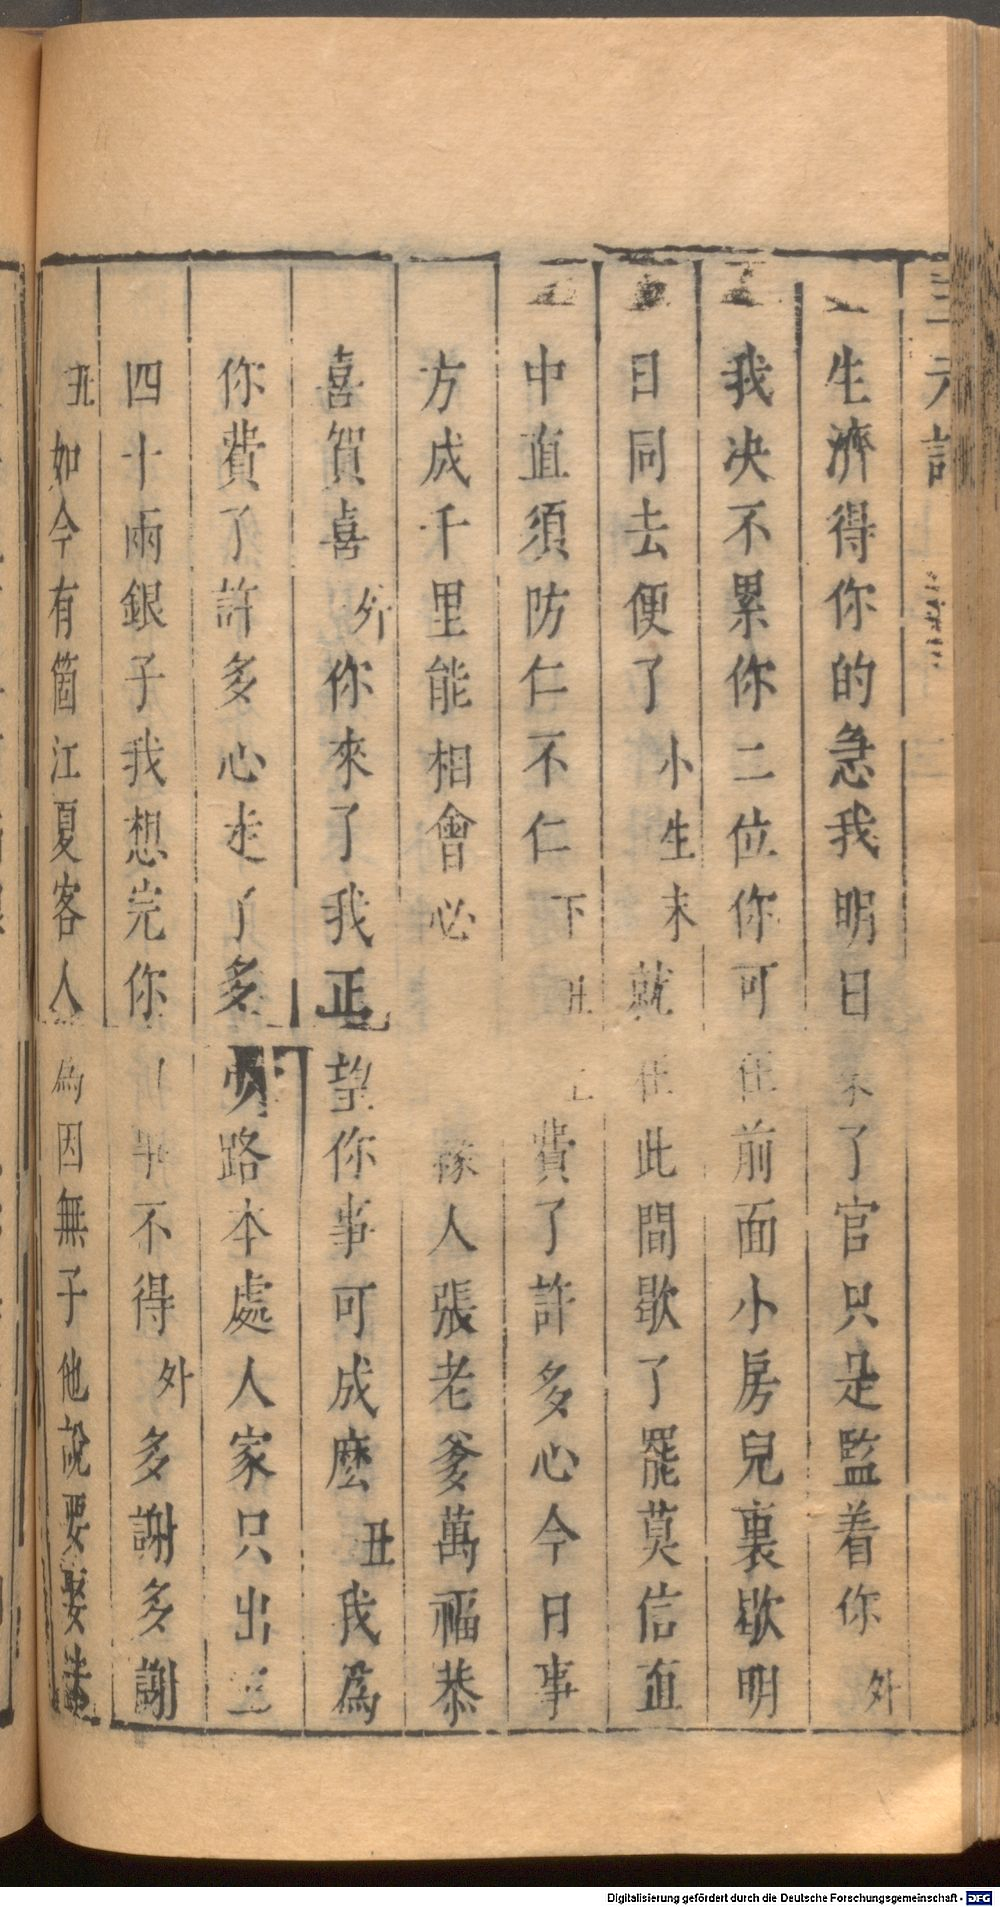 三元記
生濟得你的急我明日 了官只是監着你外
我决不累你二位你可在前面小房兒裏歇明
日同去便了小生末就在此間歇了罷莫信直
中直須防仁不仁下丑 費了許多心今日事
方成千里能相會必 人張老爹萬福恭
喜賀喜外你來了我正望你事可成麼丑我為
你費了許多心走了多 路本處人家只出三
四十兩銀子我想完你 事不得外多謝多謝
丑如今有箇江夏客人為因無子他說要娶
Digitalisierung gefördert durch die Deutsche Forschungsgemeinschaft - DFG